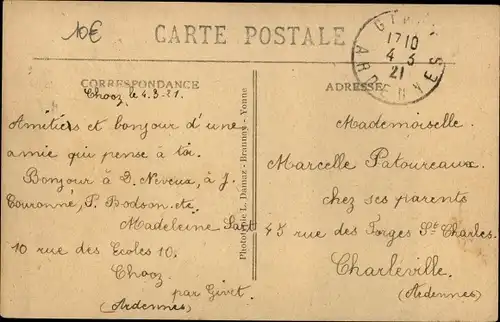 10€
CARTE POSTALE
17 10
4 3
21
ARDENNES
CORRESPONDANCE
ADRESSE
Chooz le 4.3.21.
Amitiés et bonjour d'une
amie qui pense à toi.
Bonjour à D. Neveux, à J.
Couronne, P. Bodson. etc.
Madeleine
10 rue des Ecoles 10.
Chooz
par Givet.
(Ardennes)
Phototypie L. Damaz - Brannay - Yonne
Mademoiselle.
Marcelle Patoureaux.
chez ses parents
45 rue des Forges St Charles.
Charleville.
(Ardennes)